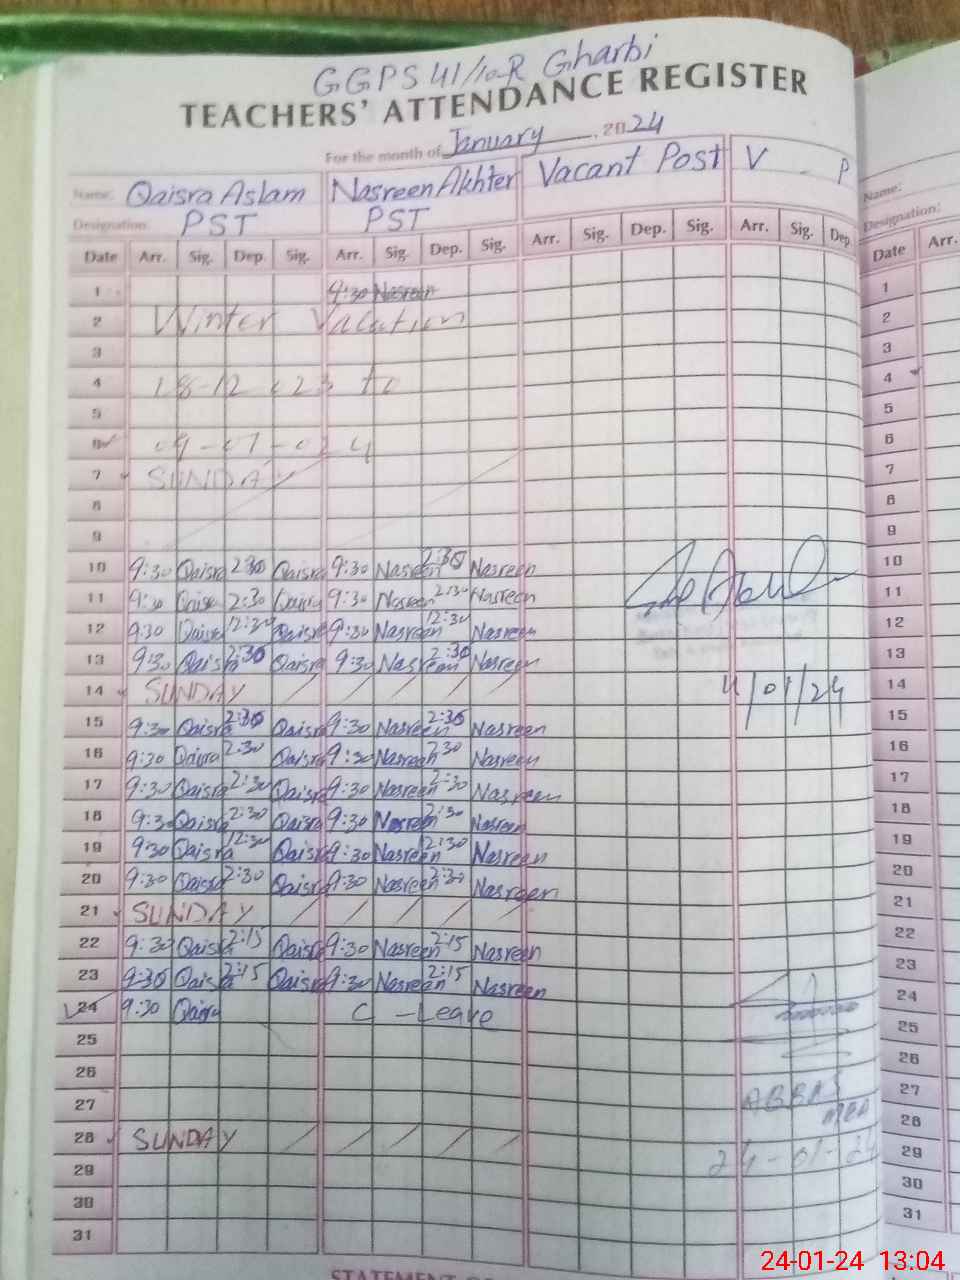 GGPS 41/10-R Gharbi
TEACHERS' ATTENDANCE REGISTER
For the month of January, 2024
Name: Qaisra Aslam Nasreen Akhter Vacant Post V . P
Designation: PST PST
Date Arr. Sig. Dep. Sig. Arr. Sig. Dep. Sig. Arr. Sig. Dep. Sig. Arr. Sig. Dep.
1 9:30 Nasreen
2 Winter Vacation
3
4 18-12-023 to
5
6 09-01-024
7 SUNDAY
8
9
10 9:30 Qaisra 2:30 Qaisra 9:30 Nasreen 2:30 Nasreen
11 9:30 Qaisra 2:30 Qaisra 9:30 Nasreen 2:30 Nasreen
12 9:30 Qaisra 12:30 Qaisra 9:30 Nasreen 12:30 Nasreen
13 9:30 Qaisra 2:30 Qaisra 9:30 Nasreen 2:30 Nasreen
14 SUNDAY 11/01/24
15 9:30 Qaisra 2:30 Qaisra 9:30 Nasreen 2:30 Nasreen
16 9:30 Qaisra 2:30 Qaisra 9:30 Nasreen 2:30 Nasreen
17 9:30 Qaisra 2:30 Qaisra 9:30 Nasreen 2:30 Nasreen
18 9:30 Qaisra 2:30 Qaisra 9:30 Nasreen 2:30 Nasreen
19 9:30 Qaisra 12:30 Qaisra 9:30 Nasreen 12:30 Nasreen
20 9:30 Qaisra 2:30 Qaisra 9:30 Nasreen 2:30 Nasreen
21 SUNDAY
22 9:30 Qaisra 2:15 Qaisra 9:30 Nasreen 2:15 Nasreen
23 9:30 Qaisra 2:15 Qaisra 9:30 Nasreen 2:15 Nasreen
24 9:30 Qaisra C - Leave
25
26
27 ABBAS
28 SUNDAY
29 24-01-24
30
31
STATEMENT
Name:
Designation:
Date Arr.
1
2
3
4
5
6
7
8
9
10
11
12
13
14
15
16
17
18
19
20
21
22
23
24
25
26
27
28
29
30
31
24-01-24 13:04